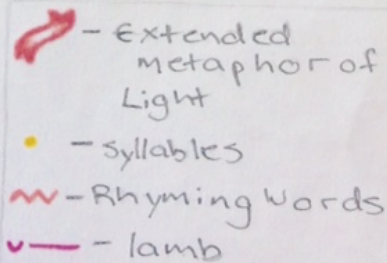 - Extended
metaphor of
Light
- syllables
- Rhyming Words
- Iamb